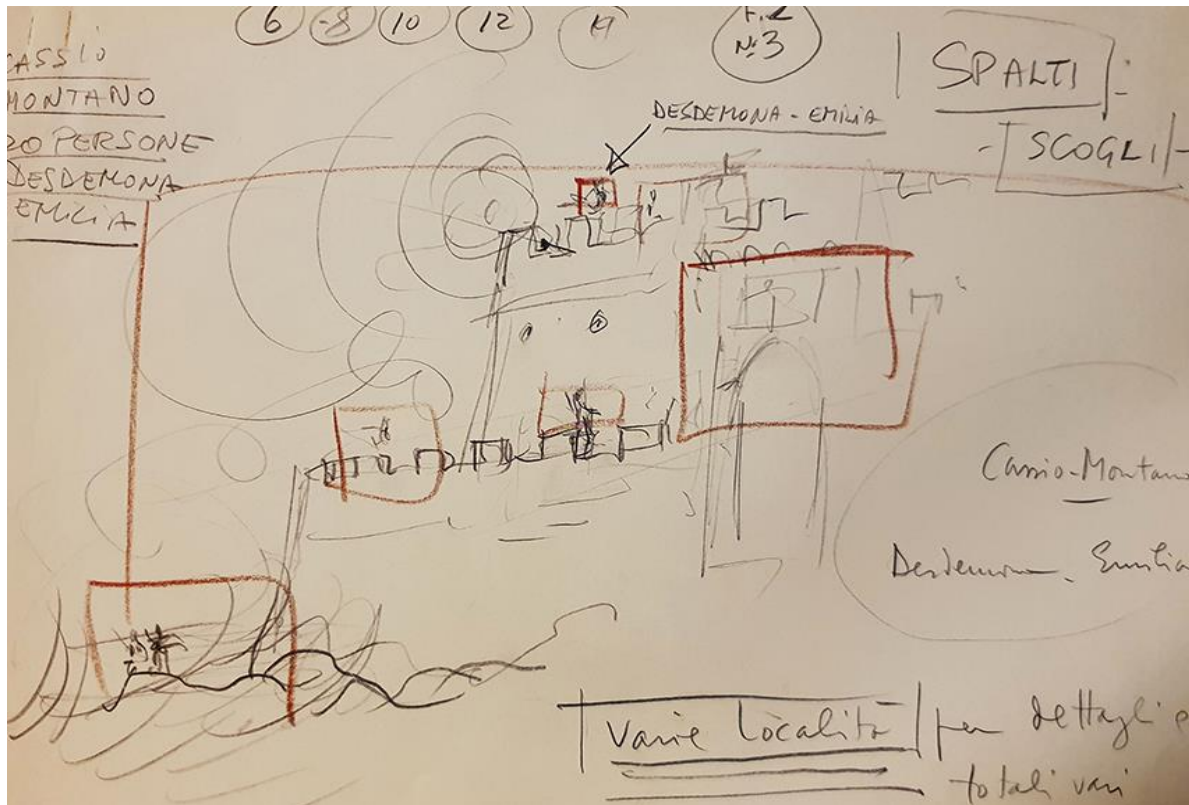 6 8 10 12 14
N:3
CASSIO
MONTANO
20 PERSONE
DESDEMONA
EMILIA
DESDEMONA - EMILIA
SPALTI :
- SCOGLI -
Cassio - Montano
Desdemona. Emilia
Varie località per dettagli e
totali vari